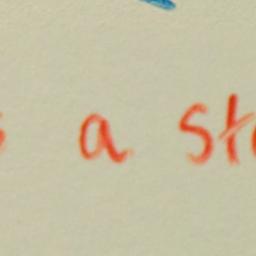 a st